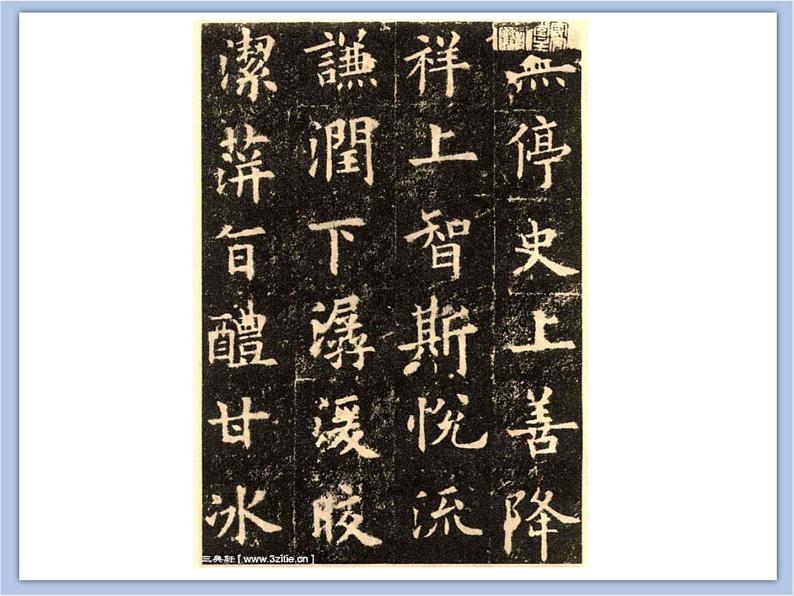 無停史上善降
祥上智斯悅流
謙潤下潺湲皎
潔蓱旨醴甘冰
三典轩[www.3zitie.cn]